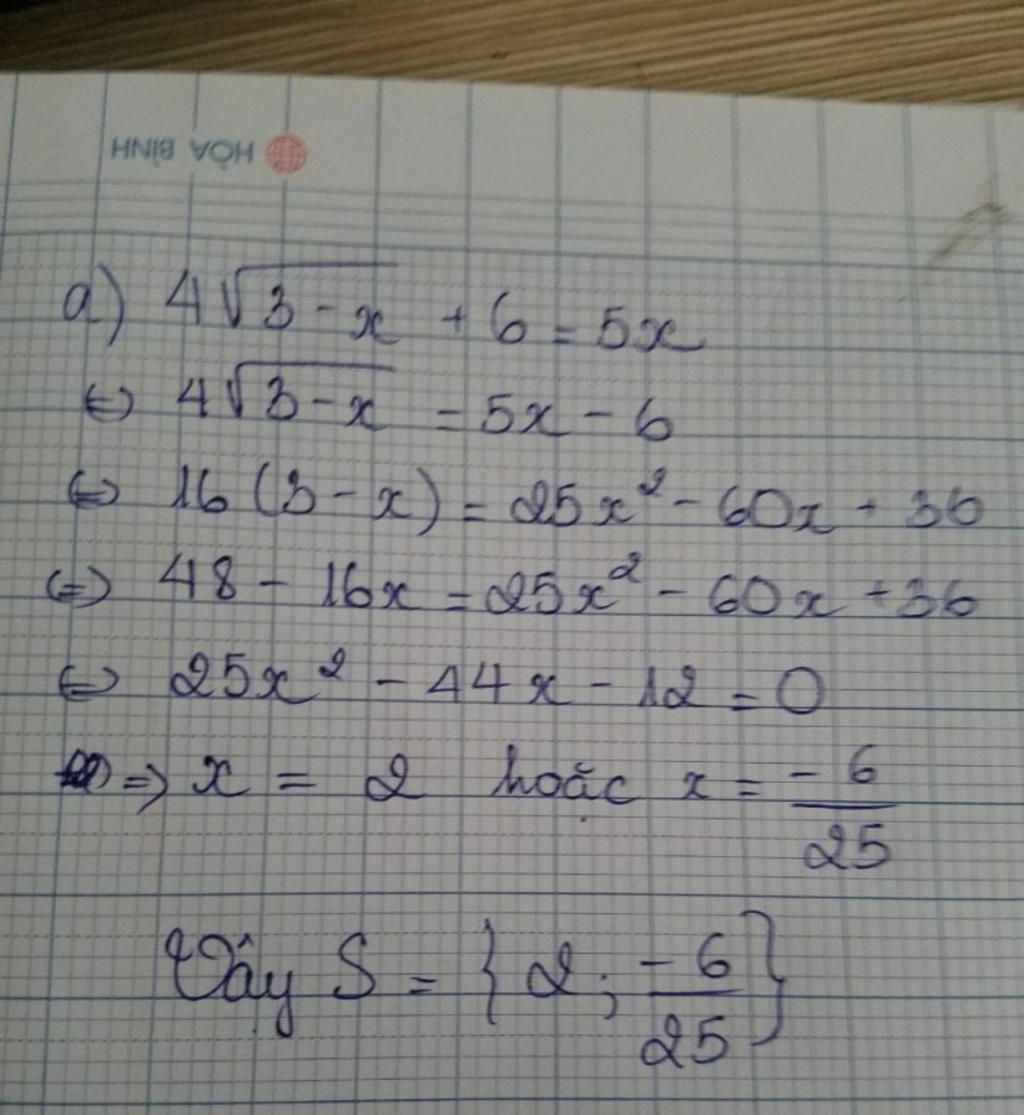 HÒA BÌNH
a) 4√(3 - x) + 6 = 5x
⇔ 4√(3 - x) = 5x - 6
⇔ 16 (3 - x) = 25x² - 60x + 36
⇔ 48 - 16x = 25x² - 60x + 36
⇔ 25x² - 44x - 12 = 0
⇒ x = 2 hoặc x = -6/25
Vậy S = {2; -6/25}